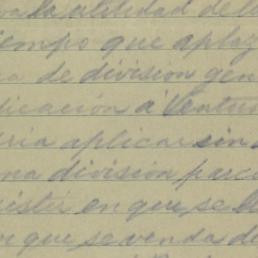 la utilidad de l
tiempo que aplaz
a de division gen
dicación á Ventur
ria aplicar sin
na división parc
istir en que se
n que se venda d